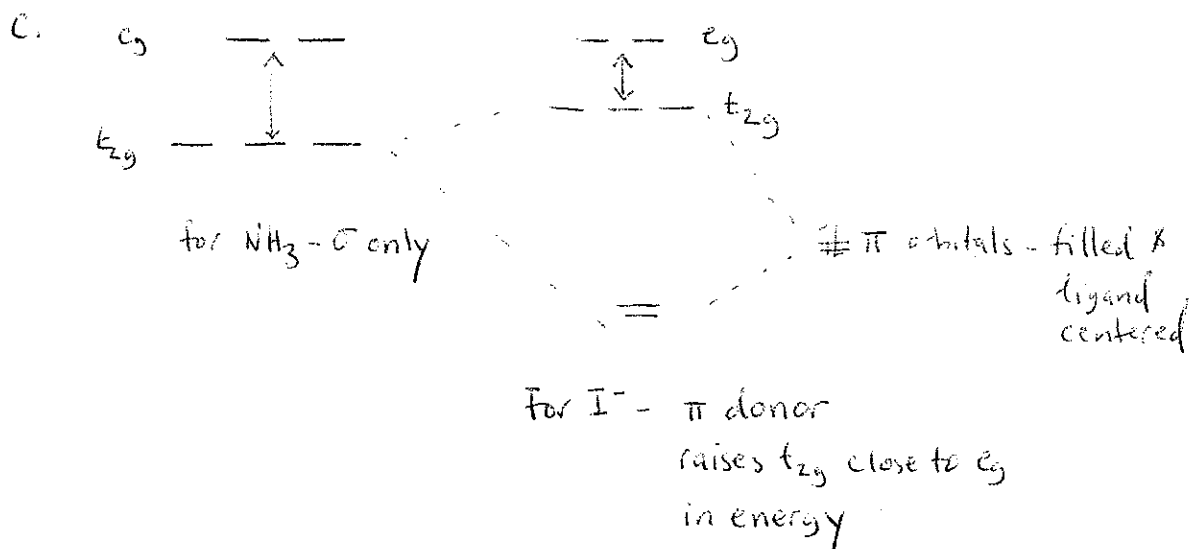 C. eg eg
t2g t2g
for NH3 - σ only
π orbitals - filled &
ligand
centered
For I⁻ - π donor
raises t2g close to eg
in energy